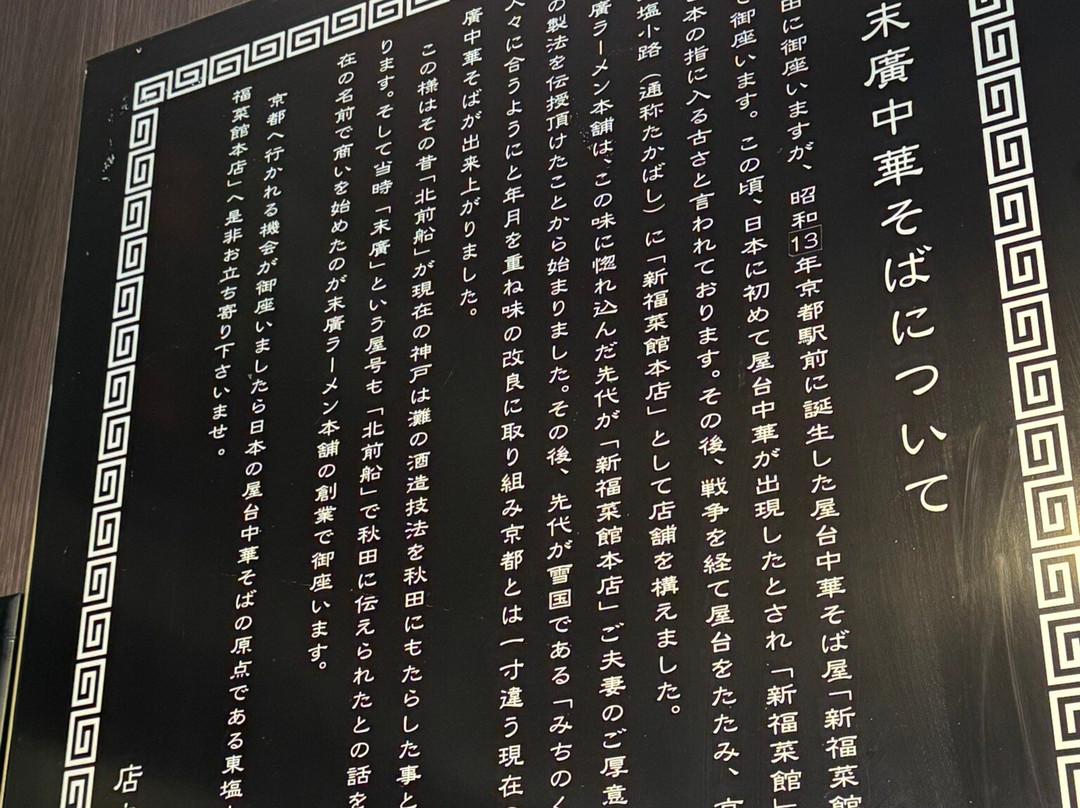 末廣中華そばについて
由に御座いますが、昭和13年京都駅前に誕生した屋台中華そば屋「新福菜館
御座います。この頃、日本に初めて屋台中華が出現したとされ「新福菜館」
本の指に入る古さと言われております。その後、戦争を経て屋台をたたみ、京
塩小路（通称たかばし）に「新福菜館本店」として店舗を構えました。
廣ラーメン本舗は、この味に惚れ込んだ先代が「新福菜館本店」ご夫妻のご厚意
の製法を伝授頂けたことから始まりました。その後、先代が雪国である「みちのく
人々に合うようにと年月を重ね味の改良に取り組み京都とは一寸違う現在の
廣中華そばが出来上がりました。
この様はその昔「北前船」が現在の神戸は灘の酒造技法を秋田にもたらした事と
ります。そして当時「末廣」という屋号も「北前船」で秋田に伝えられたとの話を
在の名前で商いを始めたのが末廣ラーメン本舗の創業で御座います。
京都へ行かれる機会が御座いましたら日本の屋台中華そばの原点である東塩
福菜館本店」へ是非お立ち寄り下さいませ。
店